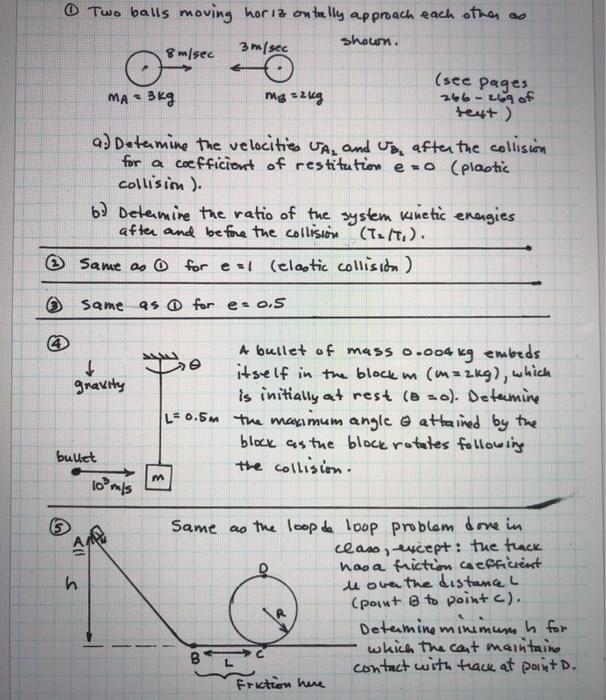 ① Two balls moving horizontally approach each other as
shown.
8 m/sec
3 m/sec
MA = 3kg
MB = 2kg
(see pages
266 - 269 of
text)
a.) Determine the velocities VA₂ and VB₂ after the collision
for a coefficient of restitution e = 0 (plastic
collision).
b) Determine the ratio of the system kinetic energies
after and before the collision (T₂/T₁).
② Same as ① for e = 1 (elastic collision)
③ Same as ① for e = 0.5
④
θ
gravity
L = 0.5m
bullet
10³ m/s
m
A bullet of mass 0.004 kg embeds
itself in the block m (m = 2kg), which
is initially at rest (θ = 0). Determine
the maximum angle θ attained by the
block as the block rotates following
the collision.
⑤ Same as the loop de loop problem done in
class, except: the track
has a friction coefficient
μ over the distance L
(point B to point C).
Determine minimum h for
which the cart maintains
contact with track at point D.
A
h
D
R
B
L
C
friction here